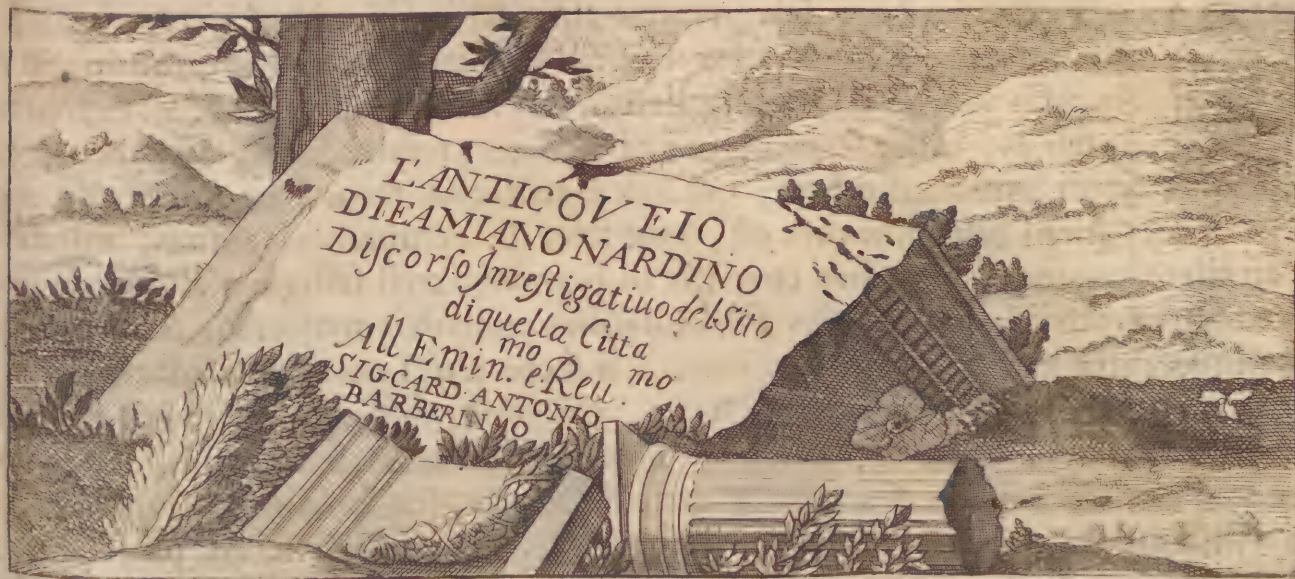 L'ANTICO VEIO
DI FAMIANO NARDINO
Diſcorſo Inveſtigatiuo del Sito
di quella Citta
All Emin.mo e Reu.mo
SIG CARD. ANTONIO
BARBERINMO